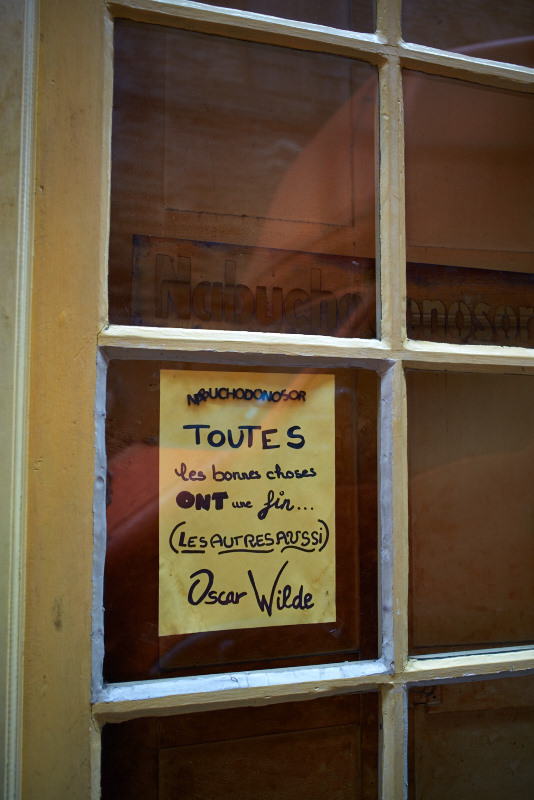 Nabucho
onosor
NABUCHODONOSOR
TOUTES
les bonnes choses
ONT une fin...
(LES AUTRES AUSSI)
Oscar Wilde